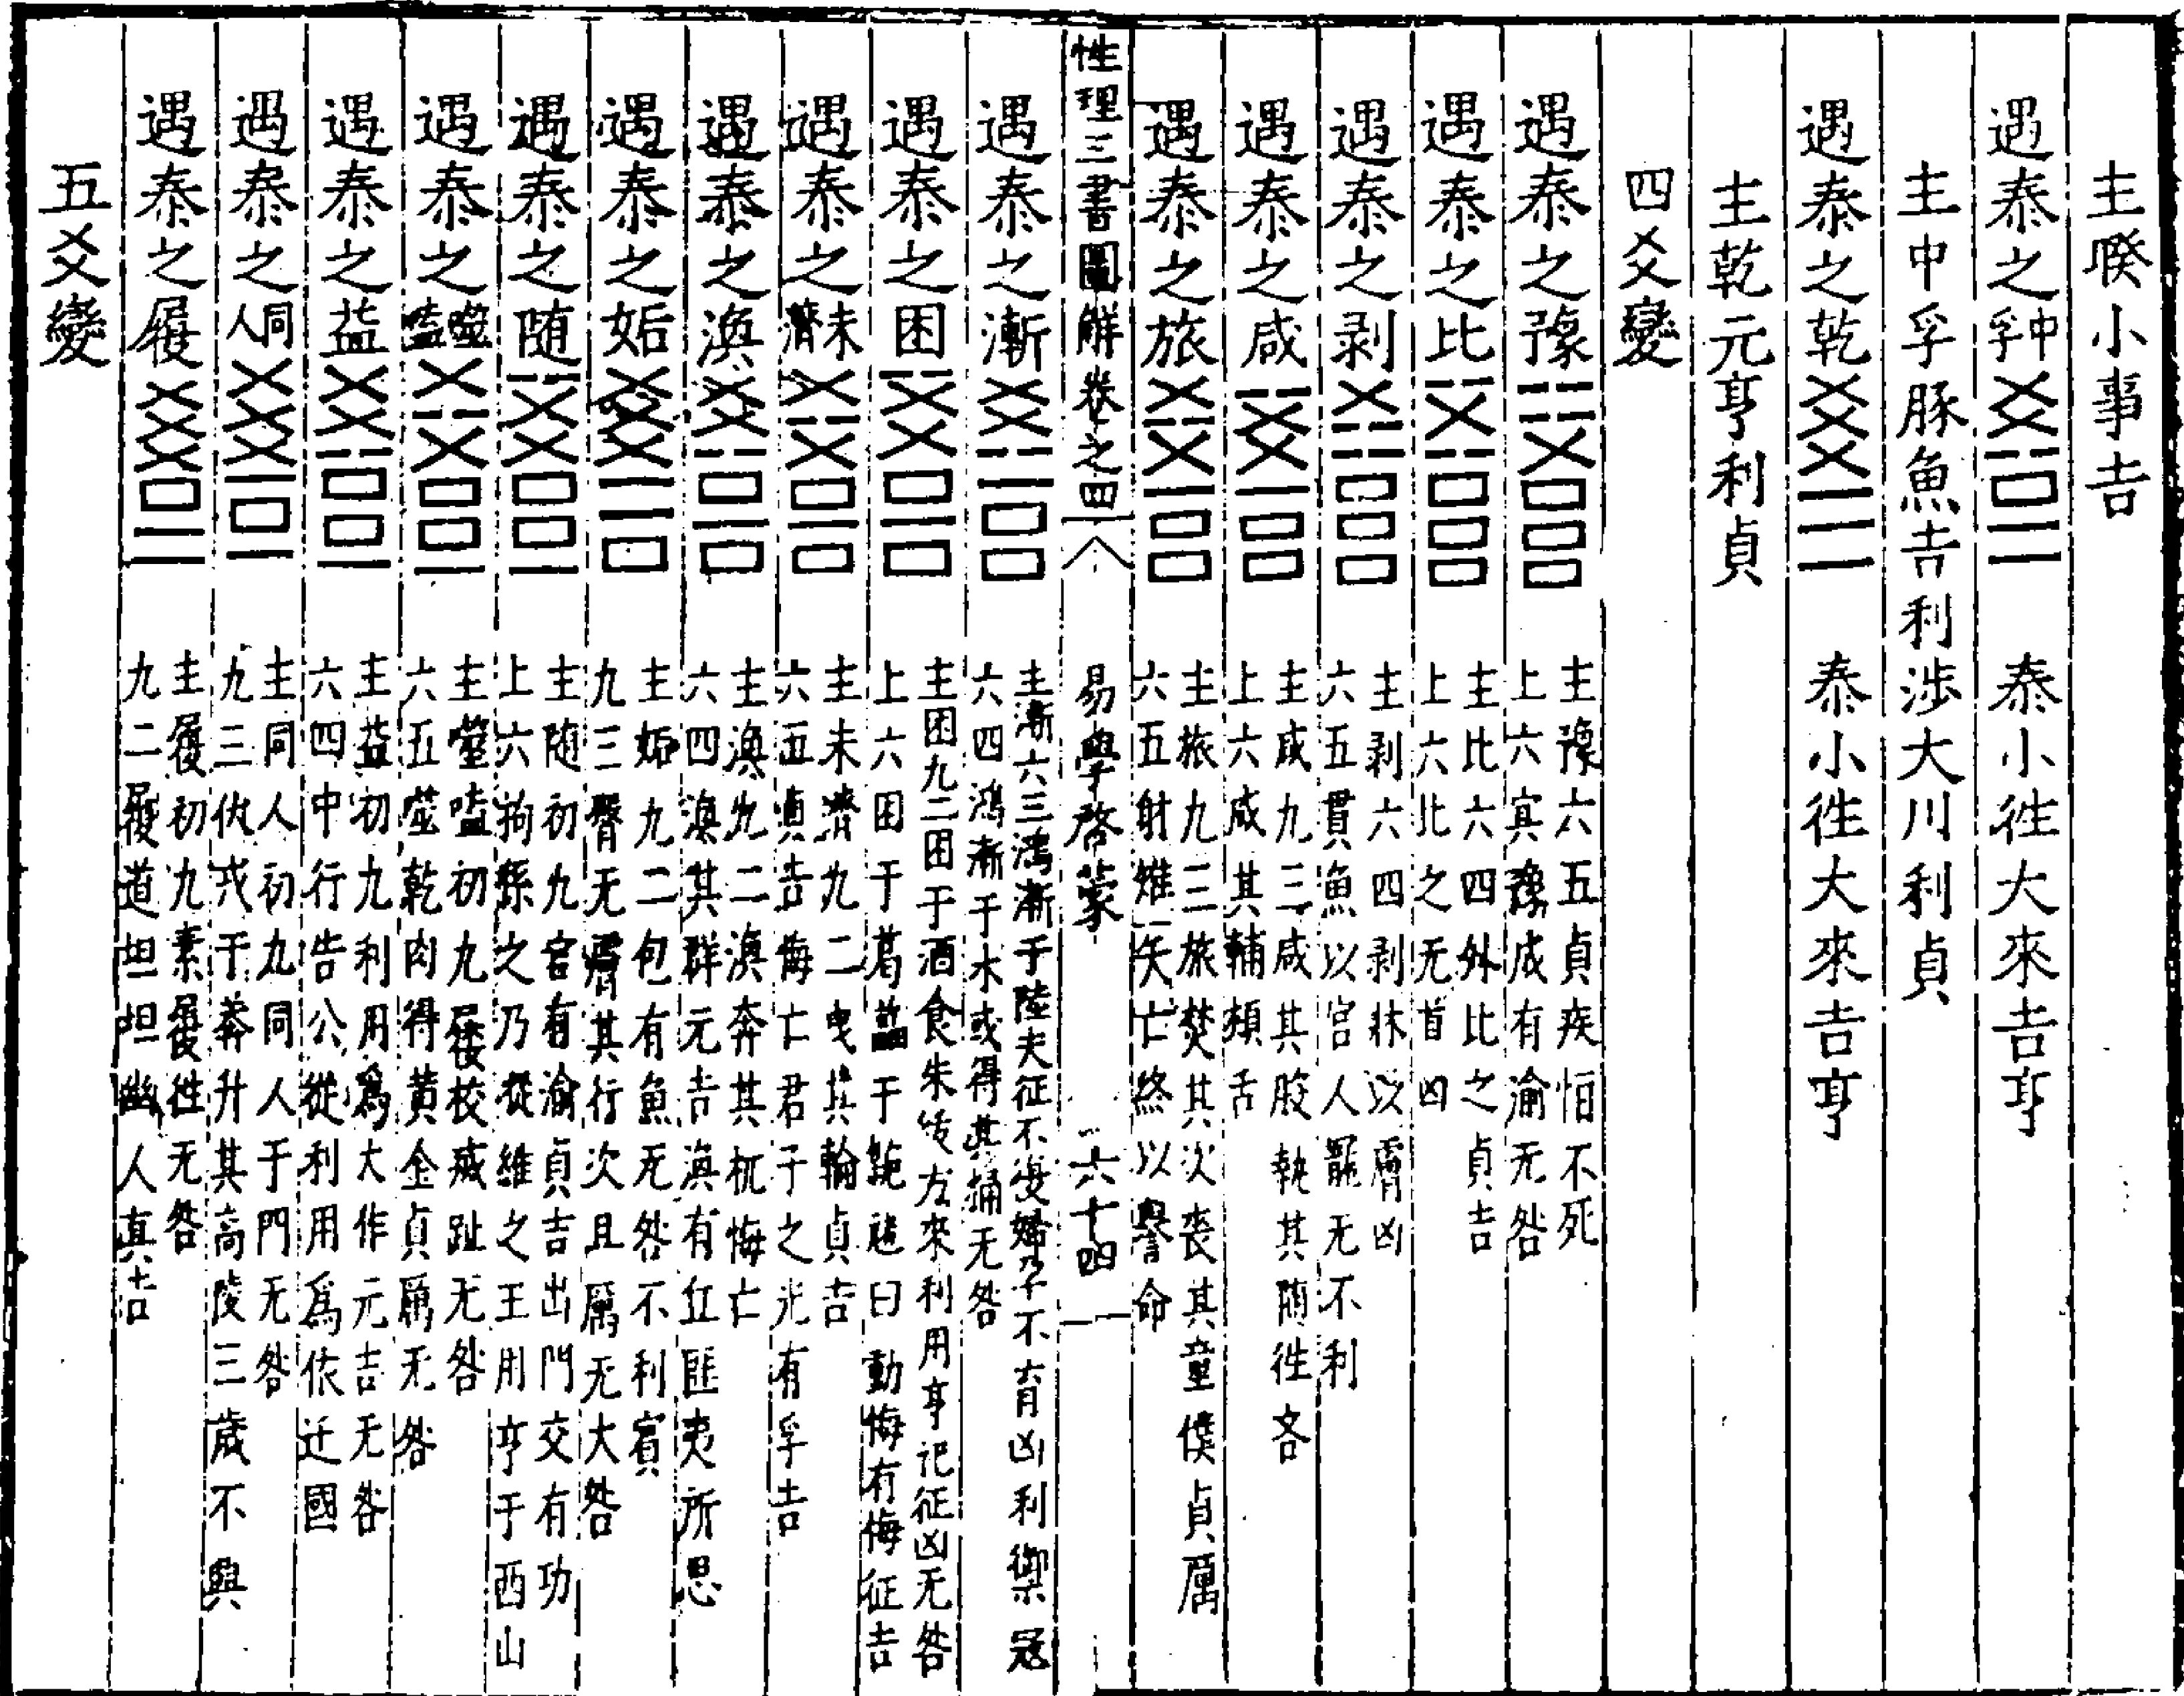 主睽小事吉
遇泰之中孚 泰小徃大來吉亨
主中孚豚魚吉利涉大川利貞
遇泰之乾 泰小徃大來吉亨
主乾元亨利貞
四爻變
遇泰之豫 主豫六五貞疾恒不死
上六冥豫成有渝无咎
遇泰之比 主比六四外比之貞吉
上六比之无首凶
遇泰之剥 主剥六四剥牀以膚凶
六五貫魚以宫人寵无不利
遇泰之咸 主咸九三咸其股執其随徃吝
上六咸其輔頰舌
遇泰之旅 主旅九三旅焚其次丧其童僕貞厲
六五射雉一矢亡終以譽命
性理三書圖解卷之四 易學啓蒙 六十四
遇泰之漸 主漸六三鴻漸于陸夫征不復婦孕不育凶利禦冦
六四鴻漸于木或得其桷无咎
遇泰之困 主困九二困于酒食朱紱方來利用亨祀征凶无咎
上六困于葛藟于臲卼曰動悔有悔征吉
遇泰之未濟 主未濟九二曳其輪貞吉
六五貞吉悔亡君子之光有孚吉
遇泰之渙 主渙九二渙奔其杌悔亡
六四渙其群元吉渙有丘匪夷所思
遇泰之姤 主姤九二包有魚无咎不利賓
九三臀无膚其行次且厲无大咎
遇泰之随 主随初九官有渝貞吉出門交有功
上六拘係之乃從維之王用亨于西山
遇泰之噬嗑 主噬嗑初九屨校滅趾无咎
六五噬乾肉得黄金貞厲无咎
遇泰之益 主益初九利用爲大作元吉无咎
六四中行告公從利用爲依迁國
遇泰之同人 主同人初九同人于門无咎
九三伏戎于莽升其高陵三歳不興
遇泰之履 主履初九素履徃无咎
九二履道坦坦幽人貞吉
五爻變